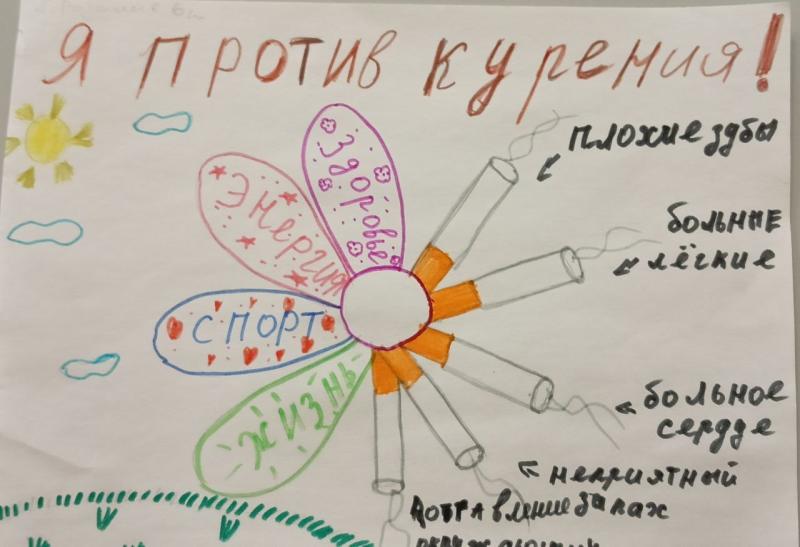 Я против курения!
Здоровье
Энергия
спорт
жизнь
плохие зубы
больные
лёгкие
больное
сердце
неприятный
запах